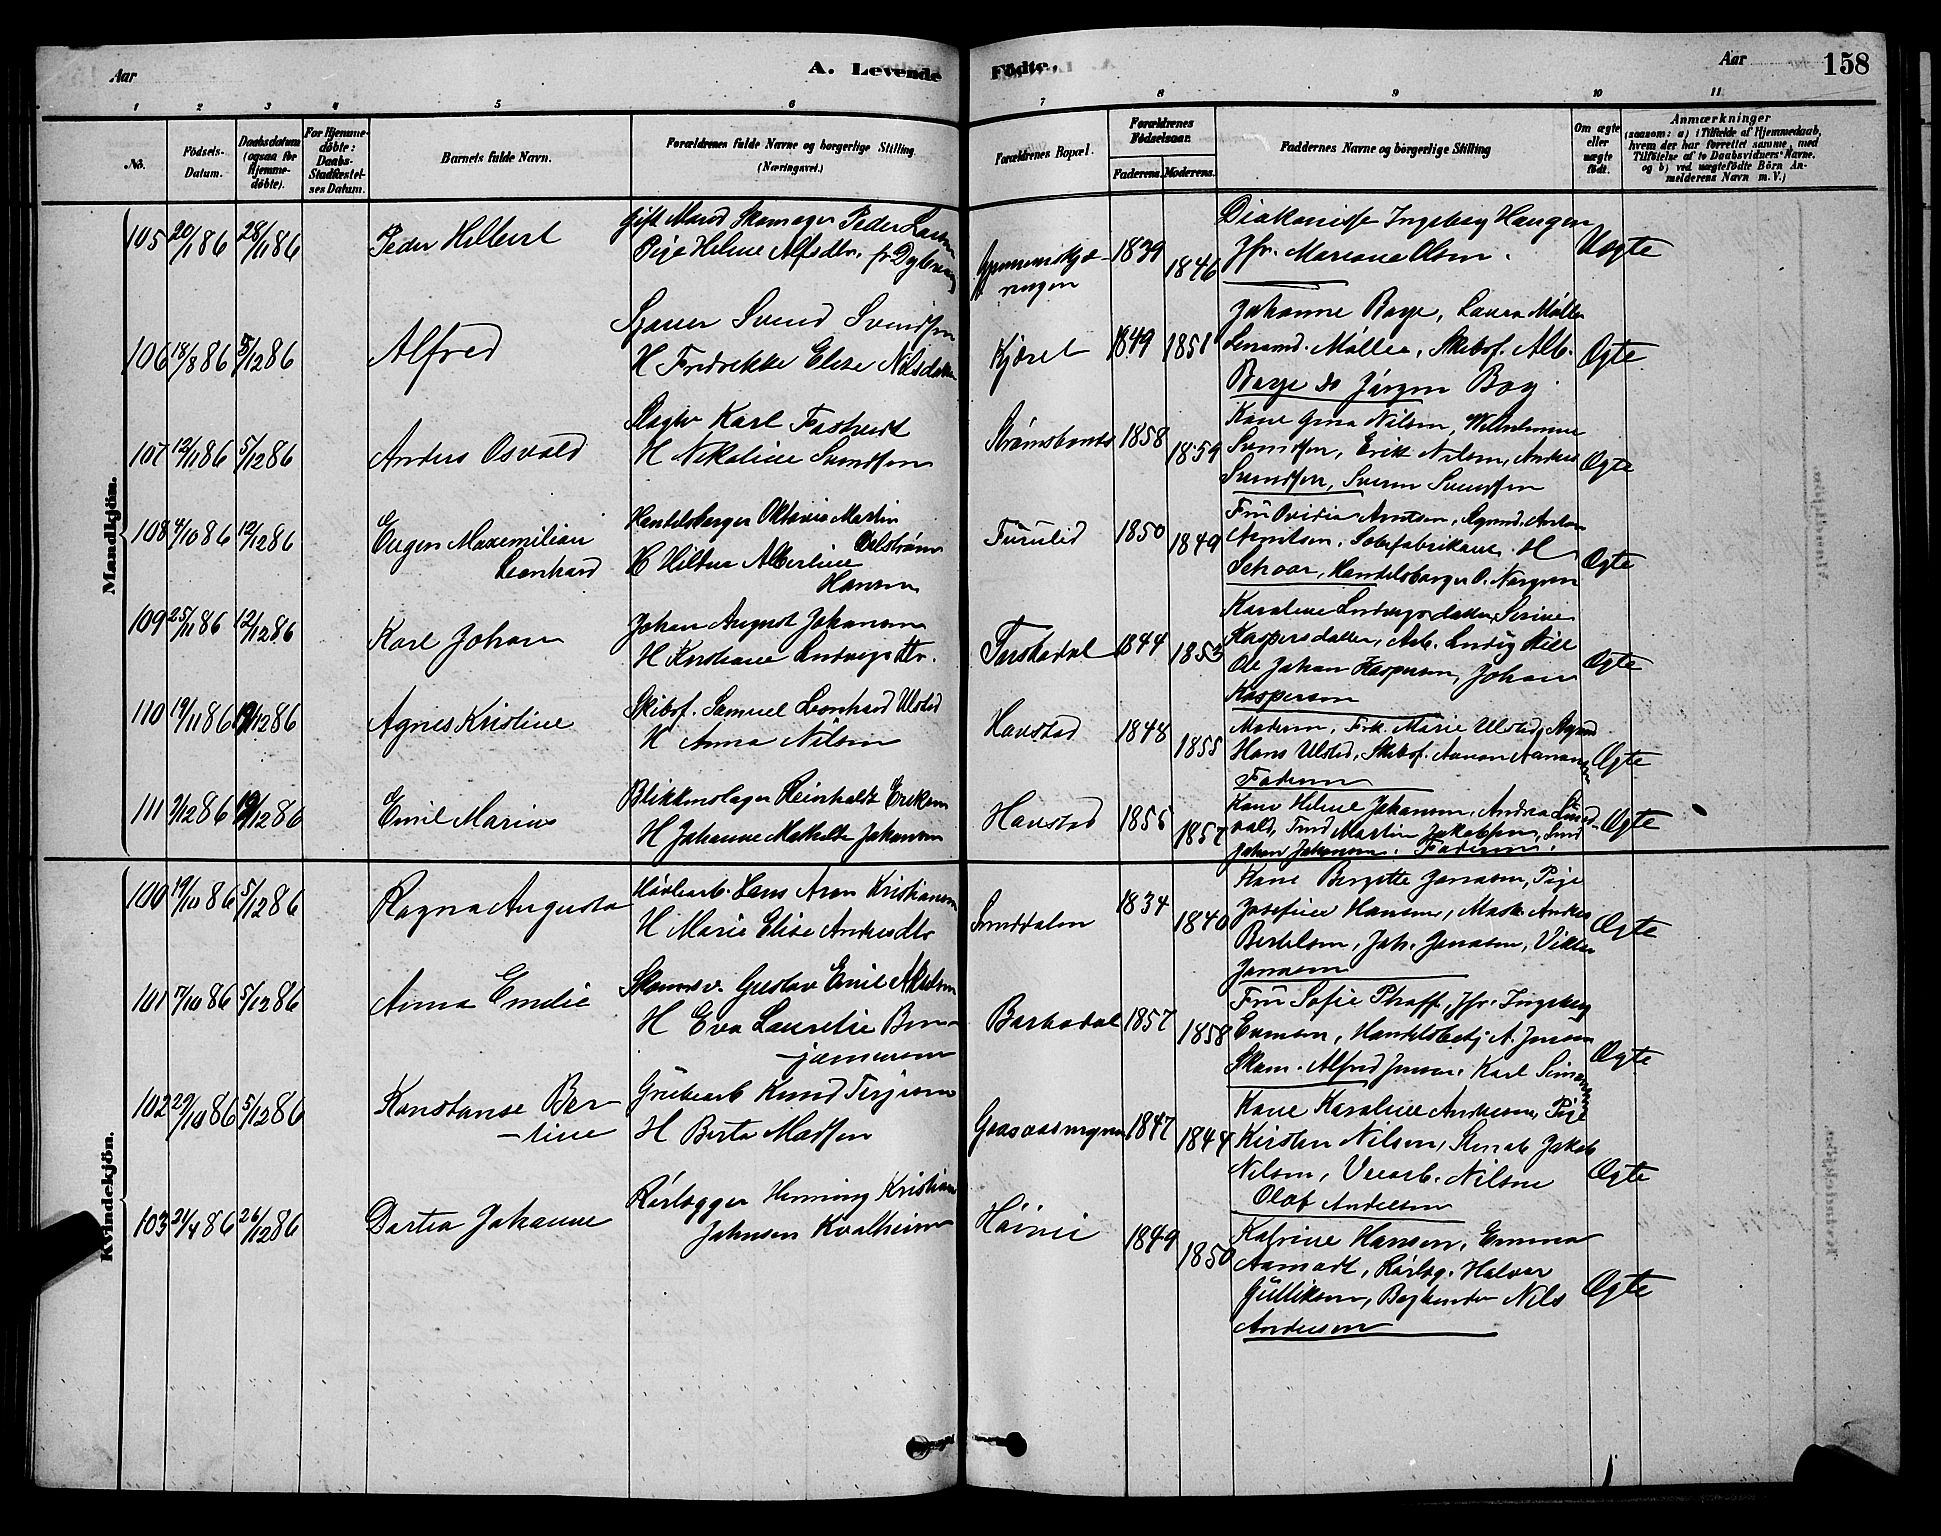 Aar
A. Levende Födte.
Aar
158
1 2 3 4 5 6 7 8 9 10 11
No.
Födsels-Datum.
Daabsdatum (ogsaa for Hjemme-döbte).
For Hjemme-döbte: Daabs-Stadfæstel-ses Datum.
Barnets fulde Navn.
Forældrenes fulde Navne og borgerlige Stilling (Næringsvei.)
Forældrenes Bopæl.
Forældrenes Födselsaar.
Faderens. Moderens.
Faddernes Navne og borgerlige Stilling
Om ægte eller uægte födt.
Anmærkninger
(saasom: a) i Tilfælde af Hjemmedaab, hvem der har forrettet samme, med Tilföielse af to Daabsvidners Navne, og b) ved uægtefödte Börn Anmelderens Navn m. V.)
Mandkjön.
105 20/1 86 28/11 86
Peder Hilbert
Gift Mand Skomager Peder Larsen
Pige Helene Alfsdtr. fr Dybvaag
1839 1846
Diakonisse Ingeborg Haugen
Jfr. Mariane Olsen.
Uægte
106 18/8 86 5/12 86
Alfred
Svend Svendsen
H Fredrikke Elise Nilsdatter
Kjæret
1849 1851
Johanne Boye, Laura Møller
Møller, Skibsf. Alb.
Boye do Jørgen Boy
Ægte
107 12/11 86 5/12 86
Anders Osvald
Slagter Karl
H Nikoline Svendsen
Strømsbunes
1858 1859
Kone Gina Nilsen, Wilhelmine
Svendsen, Erik Nilsen, Anders
Svendsen, Svenn Svendsen
Ægte
108 4/10 86 12/12 86
Eugen Maximilian
Leonhard
Handelsborger Oktavius Martin
H Hilda Albertine
Hansen
Furulid
1850 1849
Fru Ovidia Arntsen, Agend. Anton
Arntsen, H
Schaar, Handelsborger O. Norgren
Ægte
109 25/11 86 12/12 86
Karl Johan
Johan August Johansen
H Kirstiane Ludvigsdtr.
Torskedal
1844 1853
Karoline Ludvigsdatter, Serine
Kaspersdatter, Arb. Ludvig
Ole Johan Kaspersen, Johan
Kaspersen
Ægte
110 19/11 86 19/12 86
Agnes Kristine
Skibsf. Samuel Leonhard Ulsted
H Anna Nilsen
Havstad
1848 1855
Moderen, Frk. Marie Ulsted, Agend
Hans Ulsted, Skibsf. Aanon Aanonsen
Faderen
Ægte
111 2/12 86 19/12 86
Emil Marius
Blikkenslager Reinholdt Eriksen
H Johanne Mathilde Johansen
Havstad
1855 1857
Kone Helene Johansen, Andrea
Martin Jakobsen,
Johan Johansen. Faderen.
Ægte
Kvindekjön.
100 19/10 86 5/12 86
Ragna Augusta
Hans Aron Kristiansen
H Marie Elise Andersdtr
Sanddalen
1834 1840
Kone Birgitte Jonasen, Pige
Josefine Hansen, Mask. Anders
Bertelsen, Joh. Jonasen, Viktor
Jonasen
Ægte
101 7/10 86 5/12 86
Anna Emilie
Skomv. Gustav Emil Akselsen
H Eva Laurelie Ben-
jaminsen
Barbodal
1857 1858
Fru Sofie Pfaff, Jfr. Ingeborg
Evensen, Handelsbetj A. Jensen
Skom. Alfred Jensen. Karl Simonsen
Ægte
102 29/10 86 5/12 86
Konstanse Ber-
tine
Grubearb Knud Terjesen
H Berta Madsen
1847 1844
Kone Karoline Andersen, Pige
Kirsten Nilsen, Stenarb Jakob
Nilsen, Veiarb. Nilsen
Olaf Andersen
Ægte
103 21/4 86 26/12 86
Dortea Johanne
Rørlægger Henning Kristian
Johnsen Kvalheim
Høinei
1849 1850
Katrine Hansen, Emma
Aamodt, Rørlæg. Halvor
Gulliksen, Bogbinder Nils
Andersen
Ægte